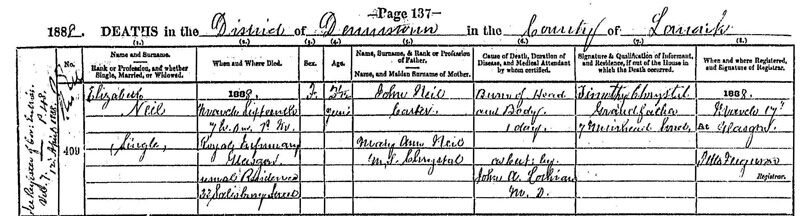 Page 137
1888. DEATHS in the District of Dennistoun in the County of Lanark
(1.) (2.) (3.) (4.) (5.) (6.) (7.) (8.)
No. Name and Surname. Rank or Profession, and whether Single, Married, or Widowed.
When and Where Died.
Sex.
Age.
Name, Surname, & Rank or Profession of Father. Name, and Maiden Surname of Mother.
Cause of Death, Duration of Disease, and Medical Attendant by whom certified.
Signature & Qualification of Informant, and Residence, if out of the House in which the Death occurred.
When and where Registered, and Signature of Registrar.
409
Elizabeth
Neil
Single
1888.
March Fifteenth
7h. 0m. P.M.
Royal Infirmary
Glasgow
usual Residence
33 Salisbury Street
F.
years
John Neil
Carter
Mary Ann Neil
M.S. Chrystal
Burn of Head
and Body
1 day
as cert. by
John A.
M.D.
Timothy Chrystal
Grandfather
7 Muirhead Street
1888.
March 17th
at Glasgow.
Ferguson
Registrar.
See Register of Cor. Entries
Vol. 7
April 1888